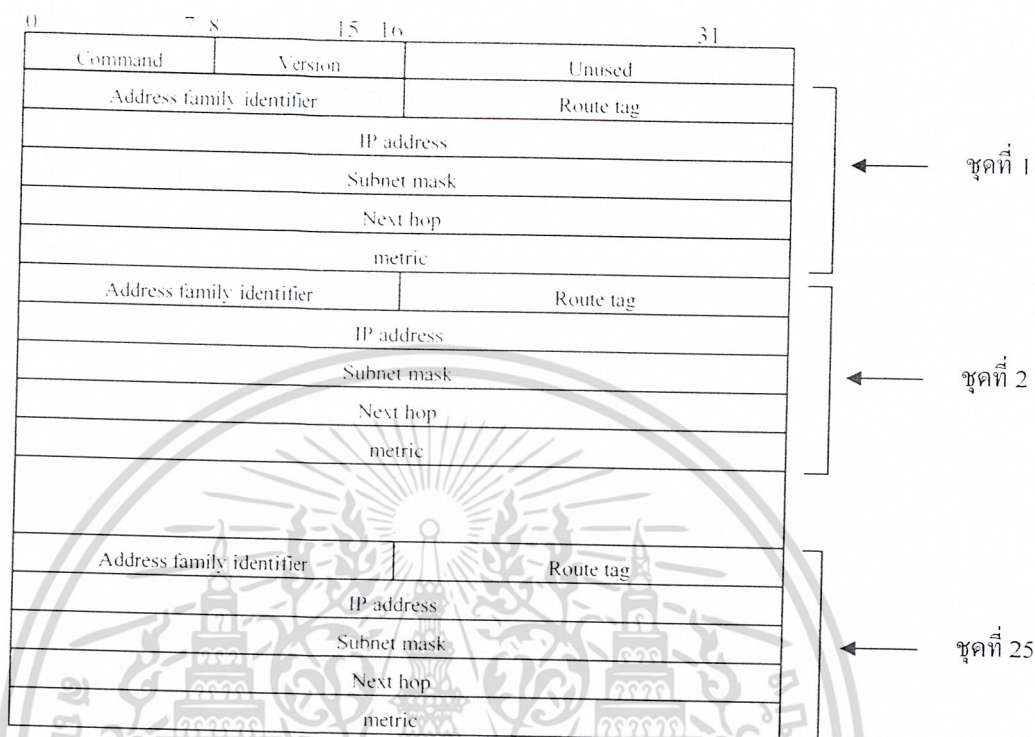 0 7 8 15 16 31
Command Version Unused
Address family identifier Route tag
IP address
Subnet mask
Next hop
metric
ชุดที่ 1
Address family identifier Route tag
IP address
Subnet mask
Next hop
metric
ชุดที่ 2
Address family identifier Route tag
IP address
Subnet mask
Next hop
metric
ชุดที่ 25